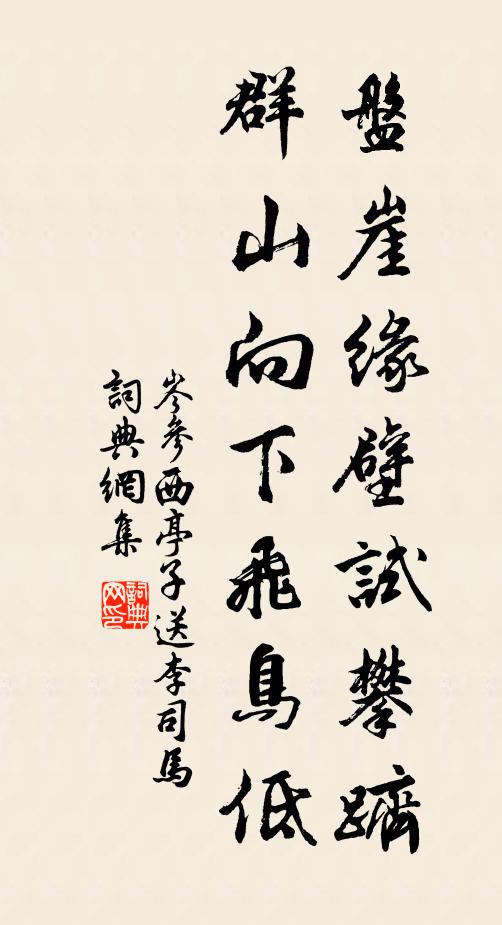 盤崖緣壁試攀躋
群山向下飛鳥低
岑參西亭子送李司馬
詞典網集
詞典网印